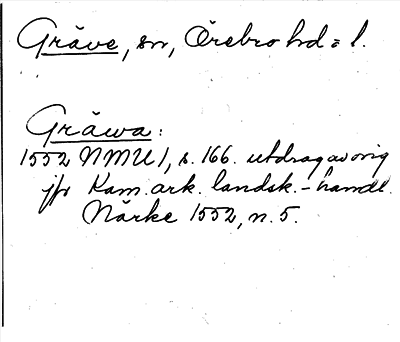 Gräve, sn, Örebro hd o l.
Gräwa:
1552 NMU 1, s. 166. utdrag av orig
jfr Kam. ark. landsk.-handl.
Närke 1552, n. 5.